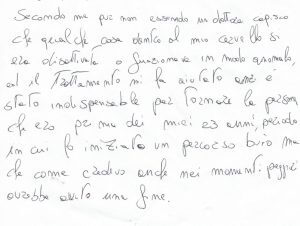 Secondo me pur non essendo un dottore capisco
che qualche cosa dentro al mio cervello si
era disattivato o funzionava in modo anomalo,
ed il Trattamento mi ha aiutato anzi è
stato indispensabile per tornare la persona
che ero prima dei miei 23 anni, periodo
in cui fu iniziato un percorso buio ma
che come credevo anche nei momenti peggiori
avrebbe avuto una fine.